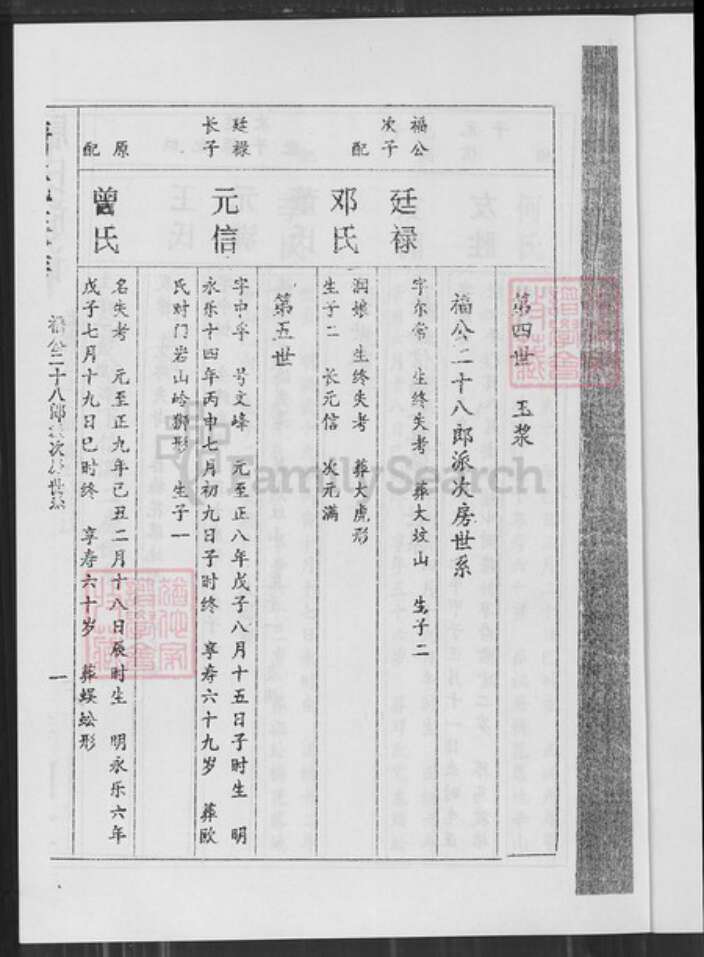 第四世 玉浆
福公二十八郎派次房世系
福公
次子
廷禄
字尔常 生终失考 葬大坟山 生子二
配
邓氏
润娘 生终失考 葬大虎形
生子二 长元信 次元满
第五世
廷禄
长子
元信
字中孚 号文峰 元至正八年戊子八月十五日子时生 明
永乐十四年丙申七月初九日子时终 享寿六十九岁 葬欧
氏对门岩山岭狮形 生子一
原
配
曾氏
名失考 元至正九年己丑二月十八日辰时生 明永乐六年
戊子七月十九日巳时终 享寿六十岁 葬蜈蚣形
福公二十八郎派次房世系
一
FamilySearch